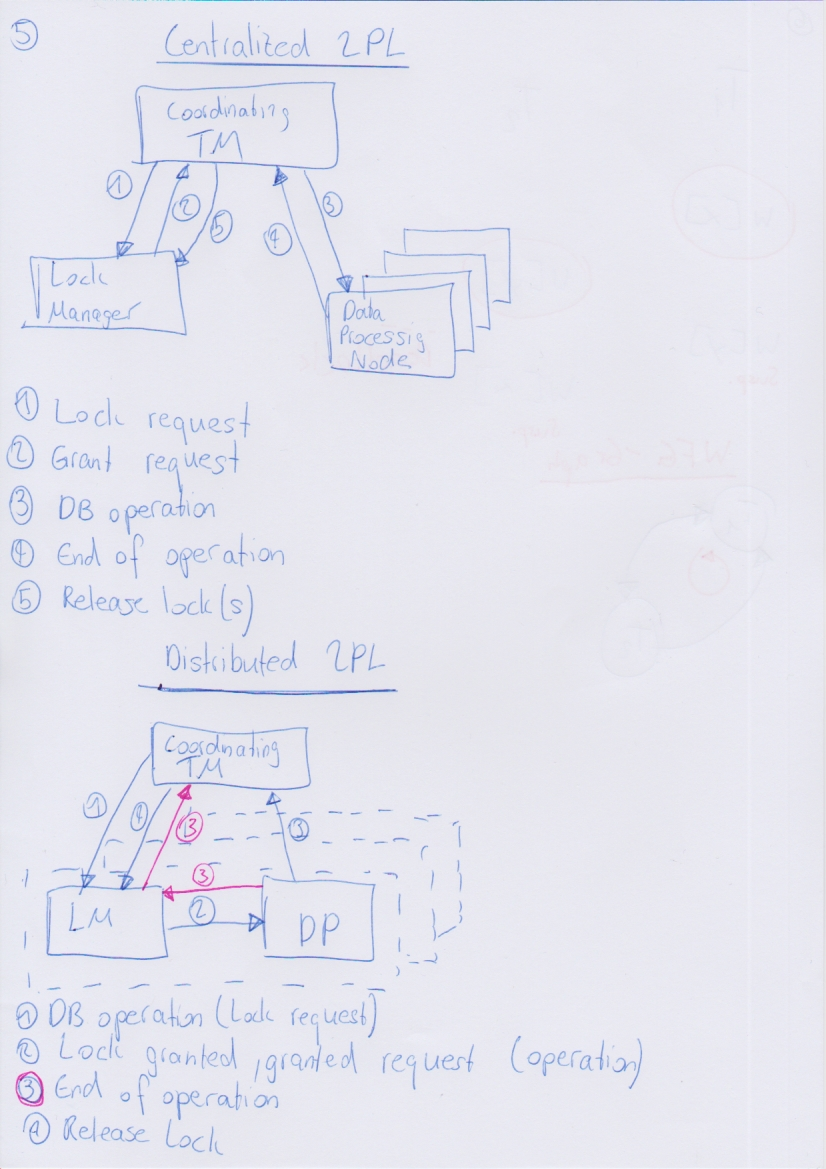 5
Centralized 2PL
Coordinating
TM
1
2
5
4
3
Lock
Manager
Data
Processig
Node
1 Lock request
2 Grant request
3 DB operation
4 End of operation
5 Release lock(s)
Distributed 2PL
Coordinating
TM
1
4
3
3
3
2
LM
DP
1 DB operation (Lock request)
2 Lock granted, granted request (operation)
3 End of operation
4 Release Lock
WFG-Graph